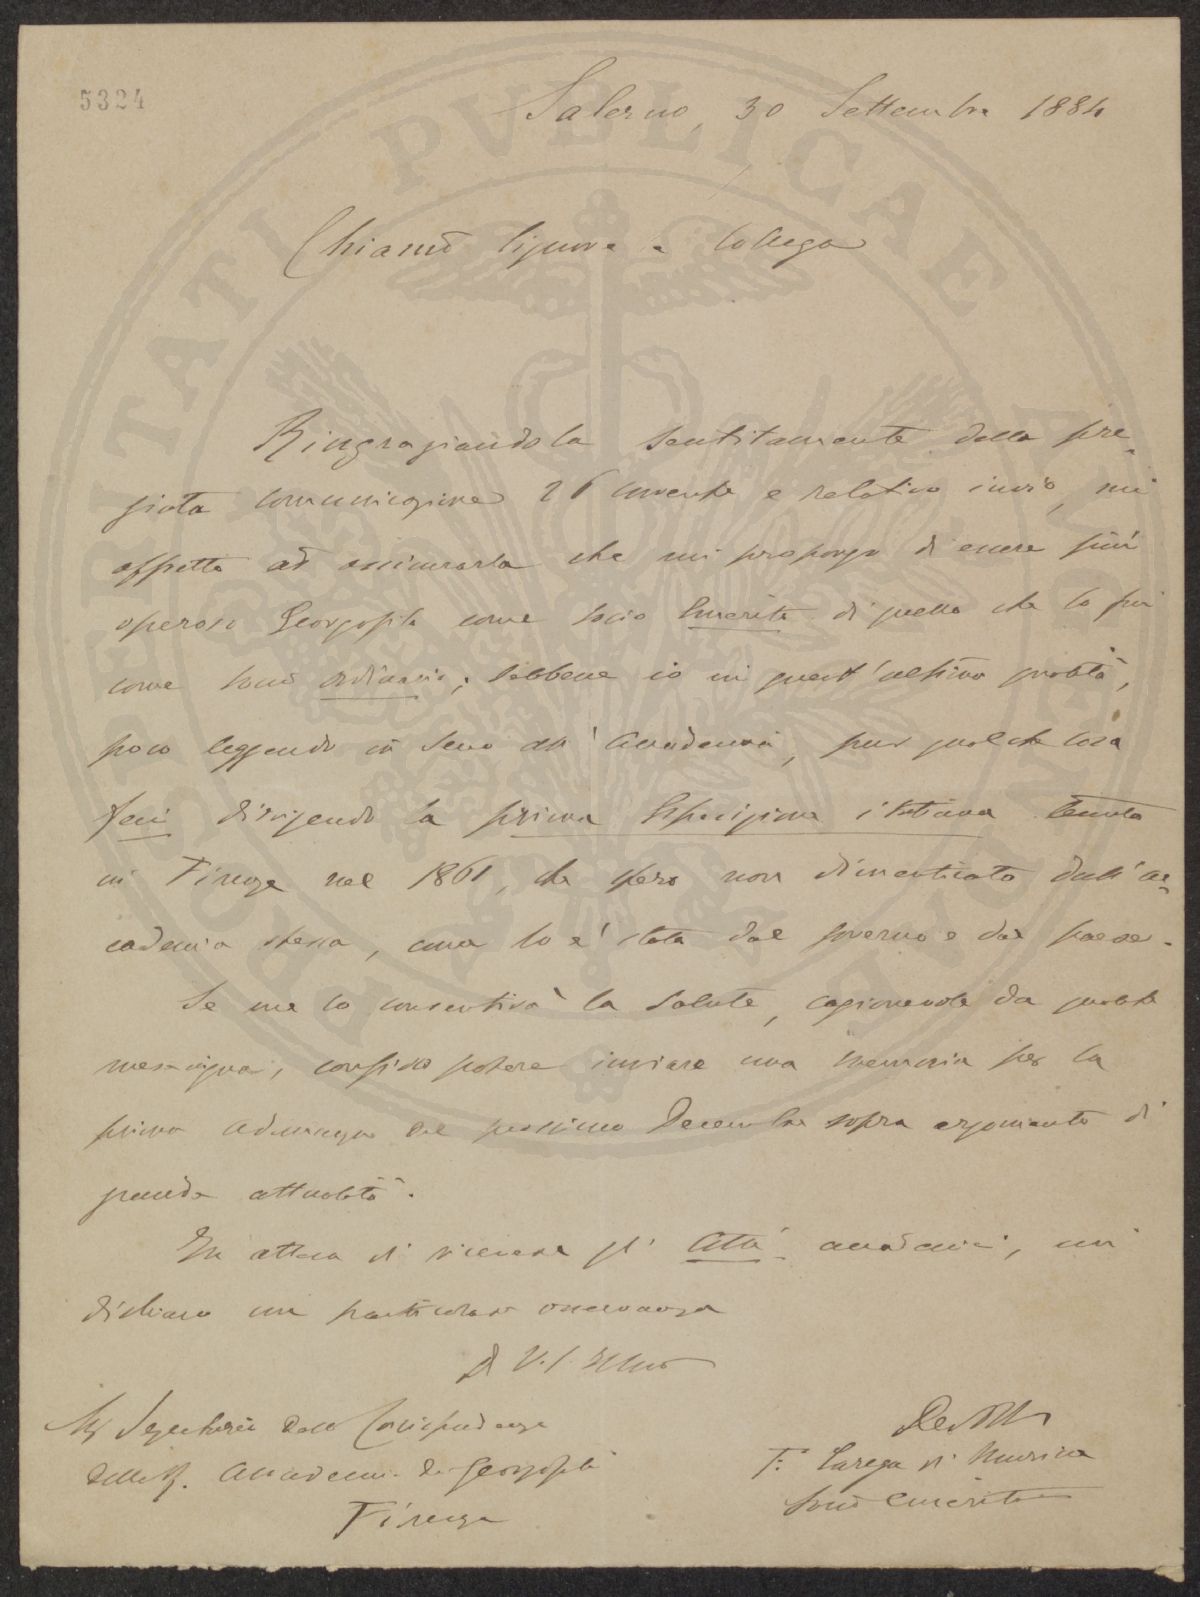 5324
Salerno, 30 Settembre 1884
Chiarmo Signore e Collega
Ringraziandola sentitamente della pre-
giata comunicazione 26 corrente e relativo invio, mi
affretto ad assicurarla che mi propongo di essere più
operoso Georgofilo come socio Emerito di quello che lo fui
come socio ordinario; sebbene io in quest'ultima qualità,
poco leggendo in seno all'Accademia, pur qualche cosa
feci dirigendo la prima Esposizione italiana tenuta
in Firenze nel 1861, che spero non dimenticata dall'Ac-
cademia stessa, come lo è stata dal governo e dal paese.
Se me lo consentirà la salute, cagionevole da qualche
mese, confido potere inviare una memoria per la
prima adunanza del prossimo Decembre sopra argomento di
grande attualità.
In attesa di ricevere gli Atti accademici, mi
dichiaro con particolare osservanza
Di V. S. Illma
Sig Segretario delle Corrispondenze
della R. Accademia dei Georgofili
Firenze
Devmo
F. Carega di Muricce
Socio Emerito
PROSPERITATI PVBLICAE AVGENDAE